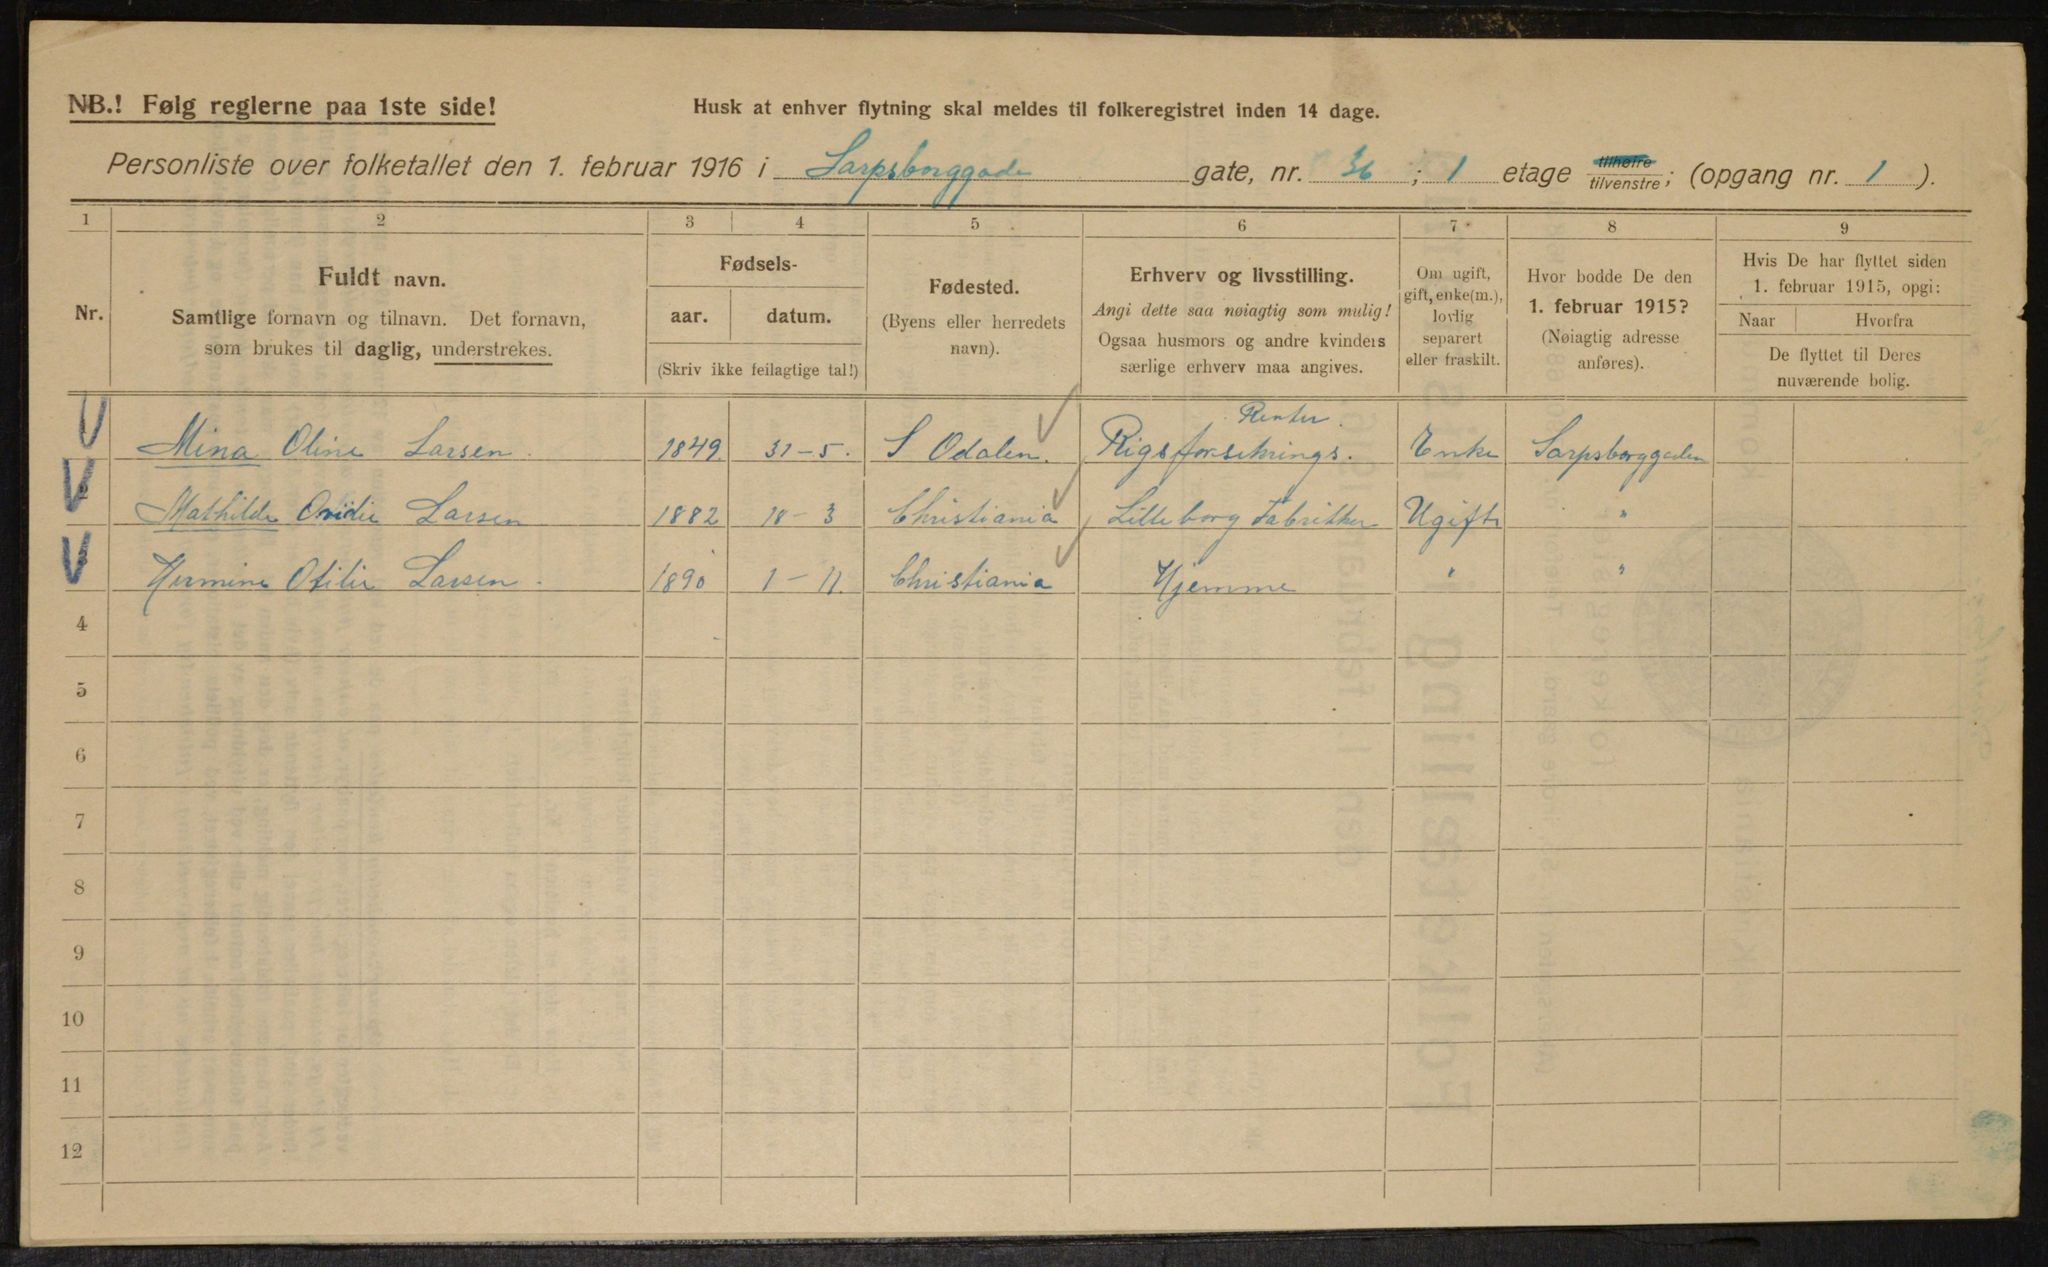 NB.! Følg reglerne paa 1ste side!
Husk at enhver flytning skal meldes til folkeregistret inden 14 dage.
Personliste over folketallet den 1. februar 1916 i Sarpsborggade gate, nr. 36 ; 1 etage tilhøire/tilvenstre; (opgang nr. 1 ).
1 2 3 4 5 6 7 8 9
Nr.
Fuldt navn.
Samtlige fornavn og tilnavn. Det fornavn,
som brukes til daglig, understrekes.
Fødsels-
aar. datum.
(Skriv ikke feilagtige tal!)
Fødested.
(Byens eller herredets
navn).
Erhverv og livsstilling.
Angi dette saa nøiagtig som mulig!
Ogsaa husmors og andre kvinders
særlige erhverv maa angives.
Om ugift,
gift, enke(m.),
lovlig
separert
eller fraskilt.
Hvor bodde De den
1. februar 1915?
(Nøiagtig adresse
anføres).
Hvis De har flyttet siden
1. februar 1915, opgi:
Naar Hvorfra
De flyttet til Deres
nuværende bolig.
Renter.
Mina Oline Larsen. 1849. 31-5. S Odalen. Rigsforsikrings. Enke Sarpsborggaden
2 Mathilde Ovidie Larsen 1882 18-3 Christiania Lilleborg Fabrikker Ugift "
3 Hermine Otilie Larsen. 1890 1-11. Christiania Hjemme " "
4
5
6
7
8
9
10
11
12